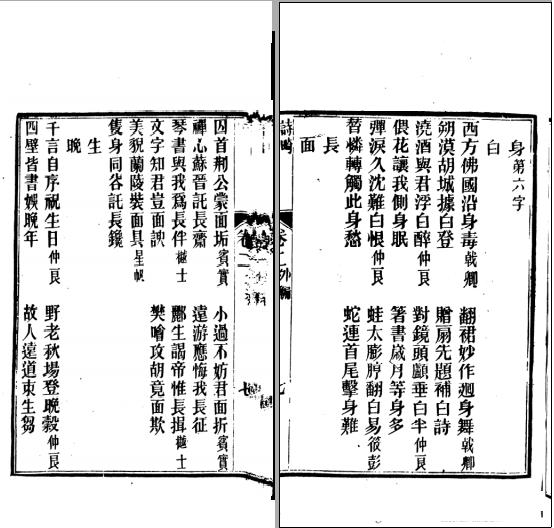 身第六字
白
西方佛國沿身毒戟卿　翻裙妙作迴身舞戟卿
朔漠胡城據白登　贈扇先題補白詩
澆酒與君浮白醉仲良　對鏡頭顱垂白半仲良
偎花讓我側身眠　箸書歲月等身多
彈淚久沈難白恨仲良　蛙太膨脝翻白易筱彭
替憐轉觸此身愁　蛇連首尾擊身難
長
面
卷二外編　七
囚首荆公蒙面垢賓實　小過不妨君面折賓實
禪心蘇晉託長齋　遠游應悔我長征
琴書與我爲長伴樾士　酈生謁帝惟長揖樾士
文字知君豈面諛　樊噲攻胡竟面欺
美貌蘭陵裝面具星帆
隻身同谷託長鑱
生
晚
千言自序祝生日仲良　野老秋場登晚穀仲良
四壁皆書娛晚年　故人遠道束生芻